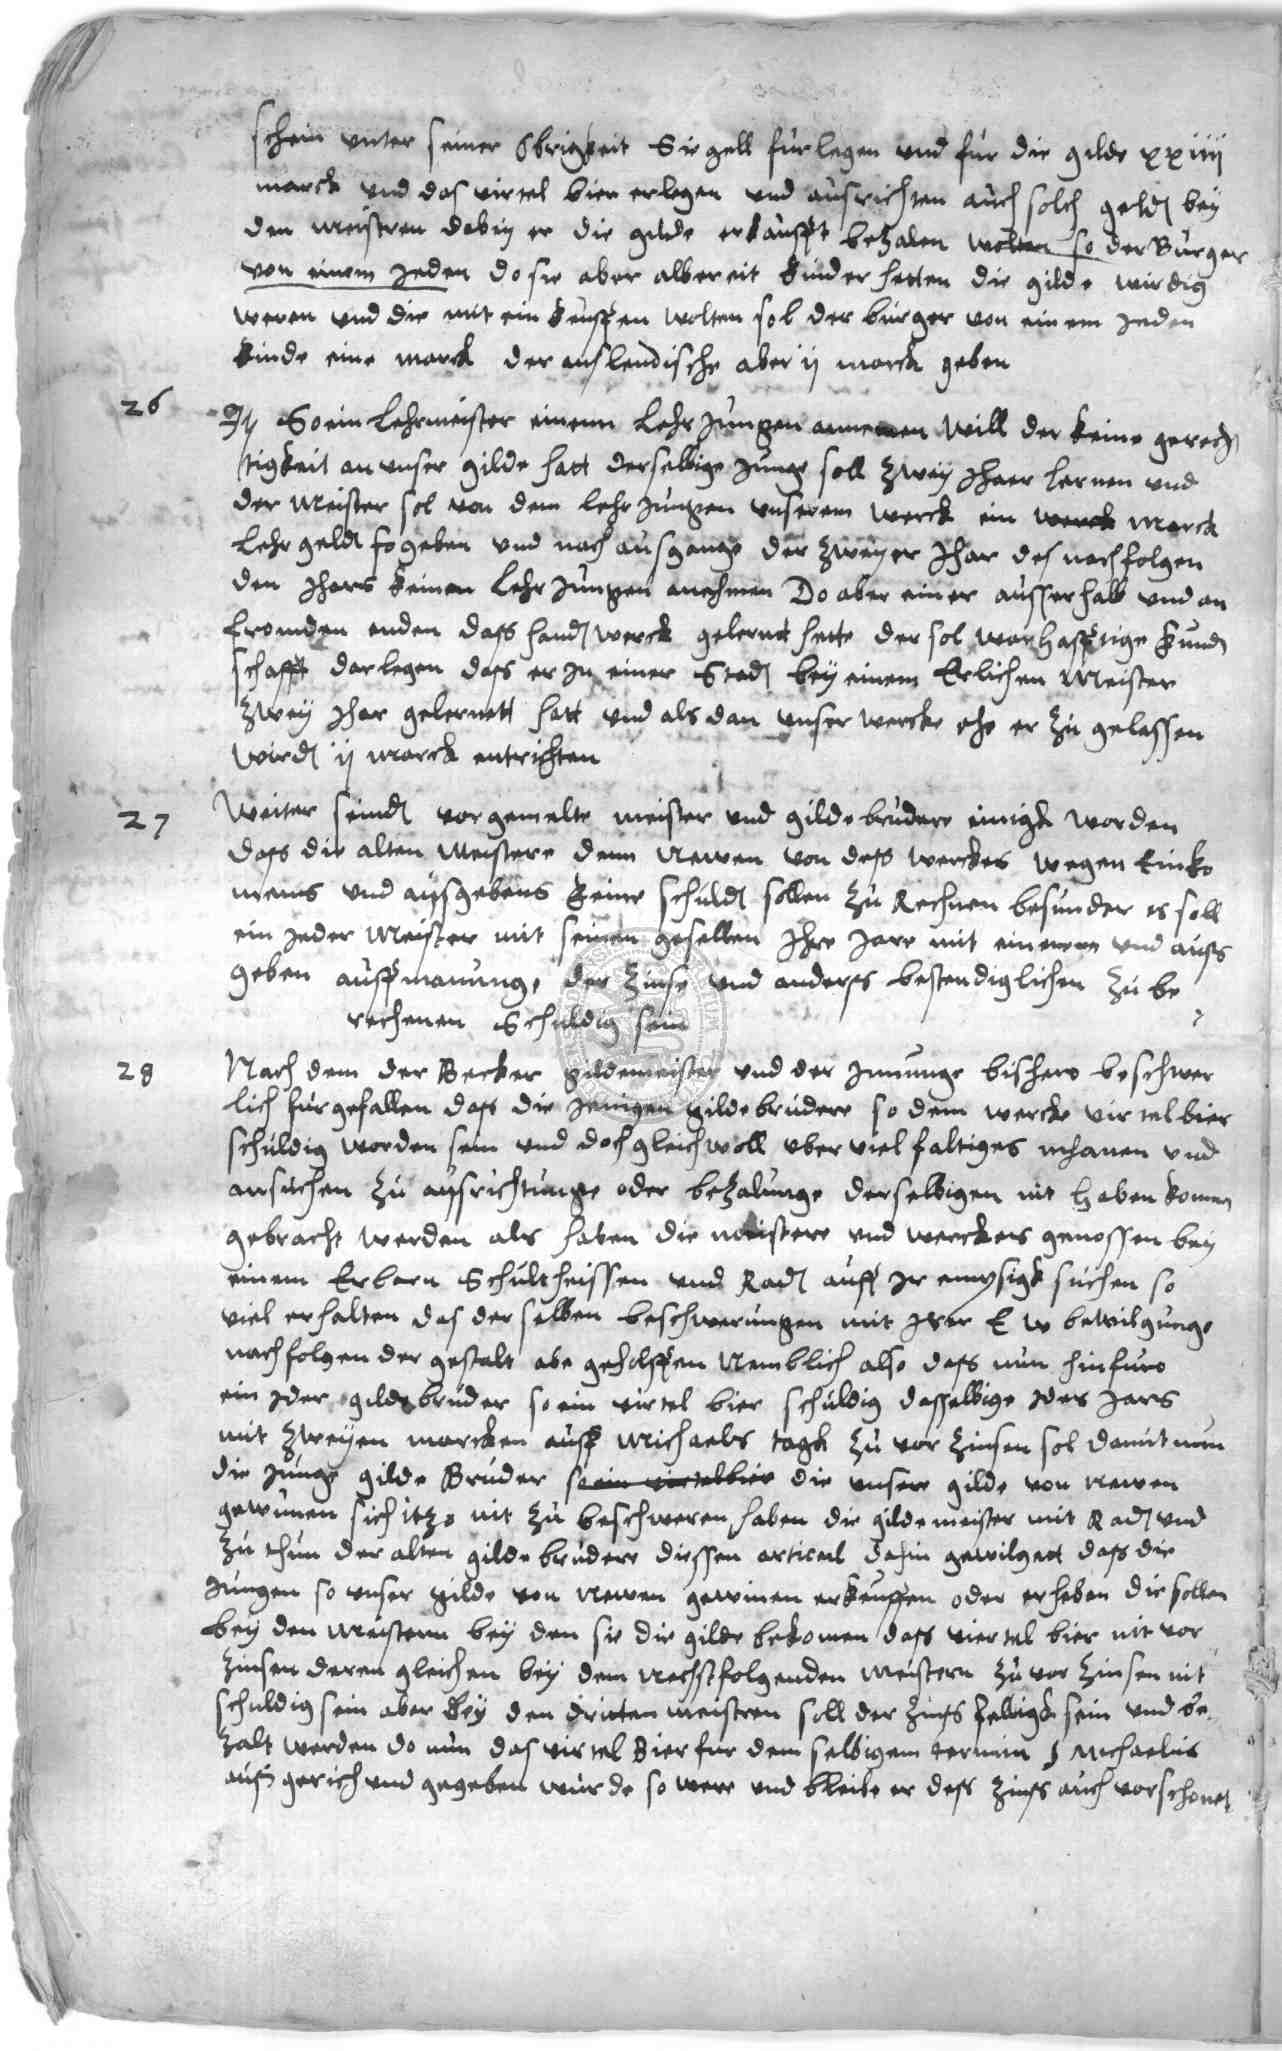 schein unter seiner Obrigkeit Siegell furlegen und fur die gilde xxiiii
marck und das virtel bier erlegen und ausrichten auch solch geldt bey
den meistren dabey er die gilde erkaufft bezalen wolten so der Burger
von einem jeden do sie aber albereit kinder hetten die gilde wirdig
weren und die mit ein keuffen wolten sol der burger von einem jeden
kinde eine marck der auslendische aber ij marck geben
26 It So ein Lehrmeister einenn Lehr jungen annemen will der keine gerech
tigkeit an unser gilde hatt derselbige junge soll zwey jhaer lernen und
der meister sol von dem lehr jungen unserem werck ein werck marck
Lehrgeldt geben und nach ausgange der zweyer jhar des nachfolgen
den jhars keinen lehr jungen anehmen Do aber einer ausserhalb und an
fromden enden dass handtwerck gelernet hette der sol warhafftige kundt
schafft darlegen dass er in einer Stadt bey einem Erlichen Meister
zwey jhar gelernett hatt und als dan unser wercke ehe er zu gelassen
wirdt ij marck entrichten
27 Weiter seindt vorgemelte meister und gildebrudere einigk worden
dass die alten Meistere denn Newen von dess werckes wegen Einko
mens und aussgebens keine schuldt sollen zu Rechnen besunder es soll
ein jeder Meister mit seinen gesellen jhre jare mit einemen und auss
geben auffmanunge der zinse und anderss bestendiglichen zu be
rechenen Schuldig sein
28 Nach dem der Becker gildemeister und der jnnunge bishero beschwer
lich furgefallen dass die jenigen gildebrudere so dem wercke virtelbier
schuldig worden sein und doch gleichwoll uber vielfaltiges mhanen und
ansuchen zu aussrichtunge oder bezalunge derselbigen nit haben konnen
gebracht werden als haben die meistere und werckes genossen bey
einem Erbarn Schultheissen und Radt auff jr emysigk suchen so
viel erhalten das derselben beschwerungen mit jrer E W bewilgunge
nachfolgender gestalt abe geholffen Nemblich also dass nun hinfuro
ein jder gildebruder so ein virtel bier schuldig dasselbige jdes jars
mit zweyen marcken auff Michaelis tagk zu vor zinsen sol damit nun
die junge gilde Bruder so ein virtelbier die unsere gilde von newen
gewinnen sich itzo nit zu beschweren haben die gildemeister mit Radt und
zu thun der alten gildebrudere diessen articul dahin gewilgett dass die
jungen so unser gilde von newen gewinen erkeuffen oder erheben die sollen
bey den Meistern bey den sie die gilde bekomen dass viertel bier nit vor
zinsen deren gleichen bey dem nechstfolgenden Meistern zu vor zinsen nit
schuldig sein aber bey den dritten meistren soll der zinss felligk sein und be
zalt werden do nun das virtel bier fur dem selbigem termin Michaelis
aussgericht und gegeben wurde so were und bleibe er dess zinss auch vorschonet